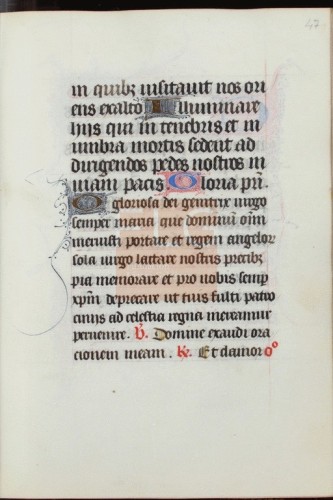 47
in quibz uisitauit nos ori
ens exalto Illuminare
hijs qui in tenebris et in
umbra mortis sedent ad
dirigendos pedes nostros in
uiam pacis Gloria pri.
O gloriosa dei genitrix uirgo
semper maria que dominum oim
meruisti portare et regem angelor
sola uirgo lactare nostris precibz
pia memorare et pro nobis semp
xpm deprecare ut tuis fulti patro
cinijs ad celestia regna mereamur
peruenire. V. Domine exaudi ora
cionem meam. R. Et clamor o